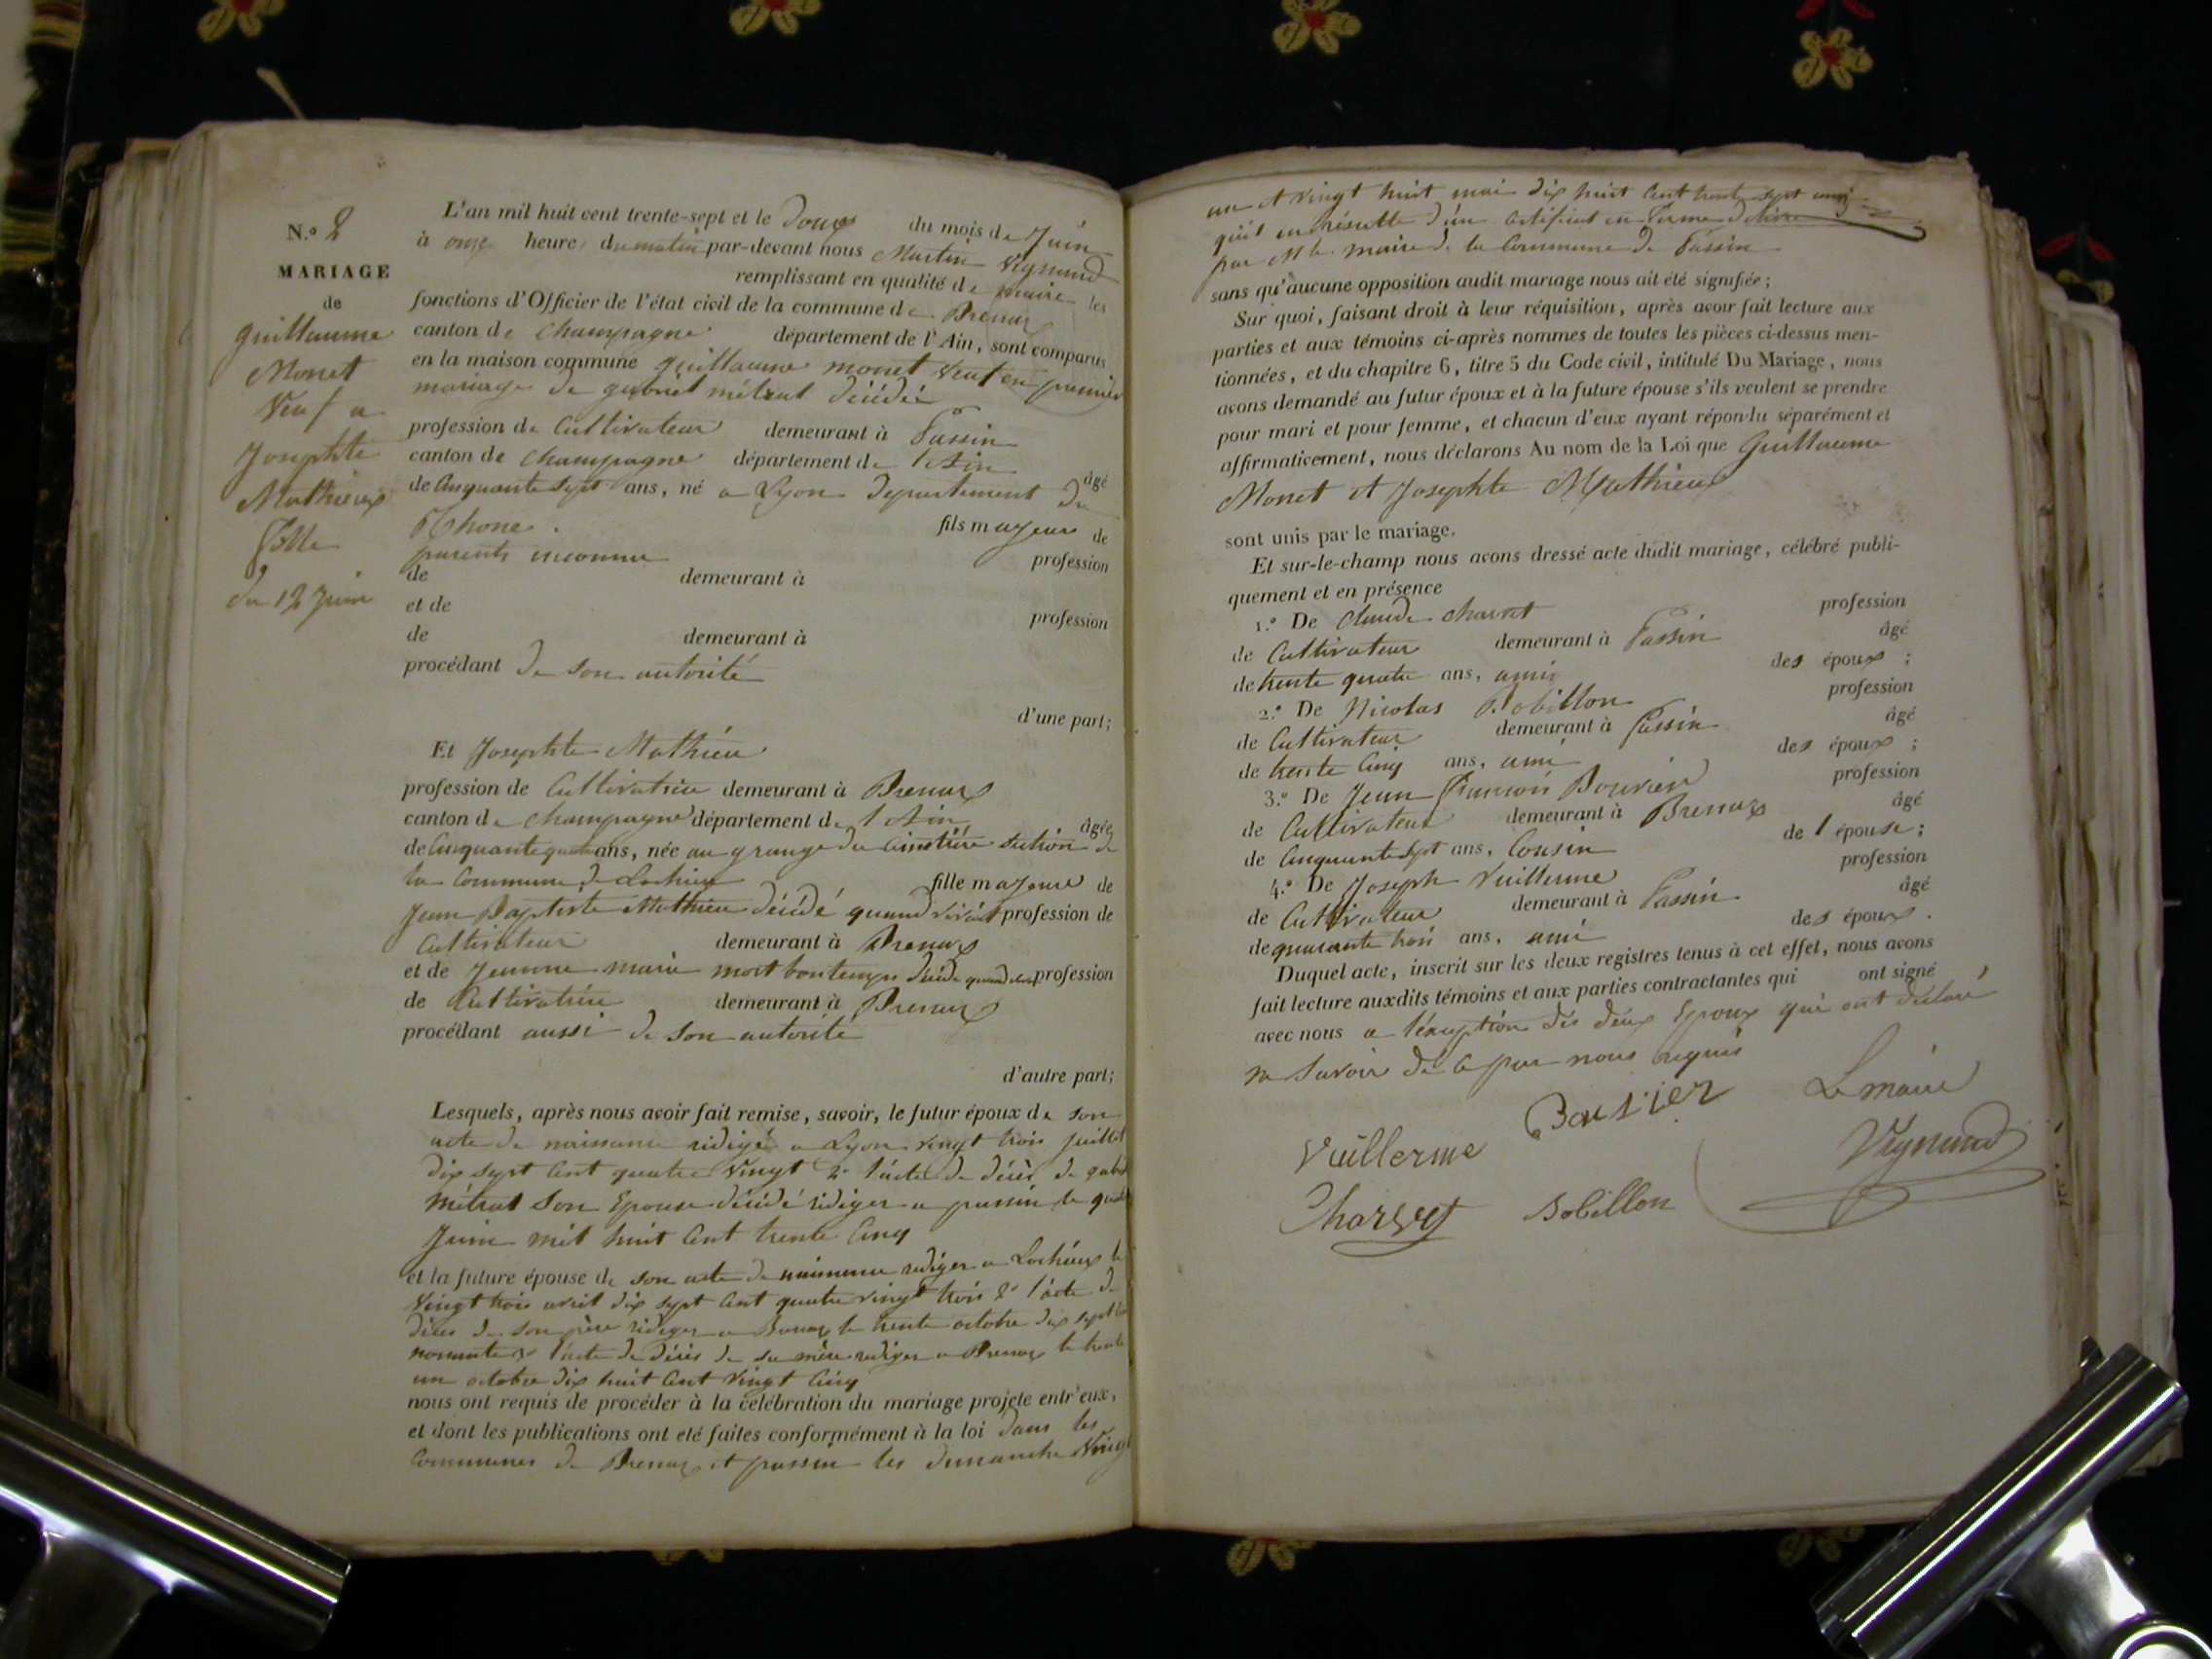 N.° 2
MARIAGE
de
guillaume
Monet
Veuf a
Josephte
Mathieux
fille
du 12 Juin
L'an mil huit cent trente-sept et le douze du mois de Juin
à onze heures du matin par-devant nous Martin Vignand
remplissant en qualité de maire les
fonctions d'Officier de l'état civil de la commune de Brenaz
canton de Champagne département de l'Ain, sont comparus
en la maison commune guillaume monet Veuf en premier
mariage de métral décédée
profession de Cultivateur demeurant à Passin
canton de Champagne département de l'Ain âgé
de Cinquante Sept ans, né a Lyon Departement du
Rhone. fils majeur de
parents inconnu profession
de demeurant à
et de profession
de demeurant à
procédant de son autorité
d'une part;
Et Josephte Mathieu
profession de Cultivatrice demeurant à Brenaz
canton de Champagne département de l'Ain âgée
de Cinquante quatre ans, née au grange du Cimetière section de
la Commune de Lochieu fille majeure de
Jean Baptiste Mathieu décédé quand vivait profession de
Cultivateur demeurant à Brenaz
et de Jeanne marie montbontemps profession
de Cultivatrice demeurant à Brenaz
procédant aussi de son autorité
d'autre part;
Lesquels, après nous avoir fait remise, savoir, le futur époux de son
acte de naissance rédigé a Lyon vingt trois juillet
dix sept cent quatre Vingt 2° l'acte de décès de
métral Son Epouse décédé rédiger a passin le
Juin mil huit cent trente Cinq
et la future épouse de son acte de naissance rédiger a Lochieux le
Vingt trois avril dix sept cent quatre vingt trois 2° l'acte de
décès de son père rédiger a Brenaz le trente octobre dix sept
nonante l'acte de décès de sa mère rediger a Brenaz le trente
un octobre dix huit cent vingt Cinq
nous ont requis de procéder à la célébration du mariage projeté entr'eux,
et dont les publications ont été faites conformément à la loi dans les
Communes de Brenaz et passin les dimanche Vingt
un et vingt huit mai dix huit cent trente sept ainsi
qu'il en résulte d'un certificat en forme
par Mr le maire de la Commune de Passin
sans qu'aucune opposition audit mariage nous ait été signifiée;
Sur quoi, faisant droit à leur réquisition, après avoir fait lecture aux
parties et aux témoins ci-après nommés de toutes les pièces ci-dessus men-
tionnées, et du chapitre 6, titre 5 du Code civil, intitulé Du Mariage, nous
avons demandé au futur époux et à la future épouse s'ils veulent se prendre
pour mari et pour femme, et chacun d'eux ayant répondu séparément et
affirmativement, nous déclarons Au nom de la Loi que Guillaume
Monet et Josephte Mathieux
sont unis par le mariage.
Et sur-le-champ nous avons dressé acte dudit mariage, célébré publi-
quement et en présence
1.° De Claude Charvet profession
de Cultivateur demeurant à Passin âgé
de trente quatre ans, ami des époux ;
2.° De Nicolas Bobillon profession
de Cultivateur demeurant à Passin âgé
de trente Cinq ans, ami des époux ;
3.° De Jean françois Bouvier profession
de Cultivateur demeurant à Brenaz âgé
de Cinquante Sept ans, Cousin de l'épouse ;
4.° De Joseph Vuillerme profession
de Cultivateur demeurant à Passin âgé
de quarante trois ans, ami des époux .
Duquel acte, inscrit sur les deux registres tenus à cet effet, nous avons
fait lecture auxdits témoins et aux parties contractantes qui ont signé
avec nous a l'éxception des deux Epoux qui ont déclaré
ne Savoir de ce par nous requis
Bouvier Le maire
Vuillerme Vignand
Charvet Bobillon